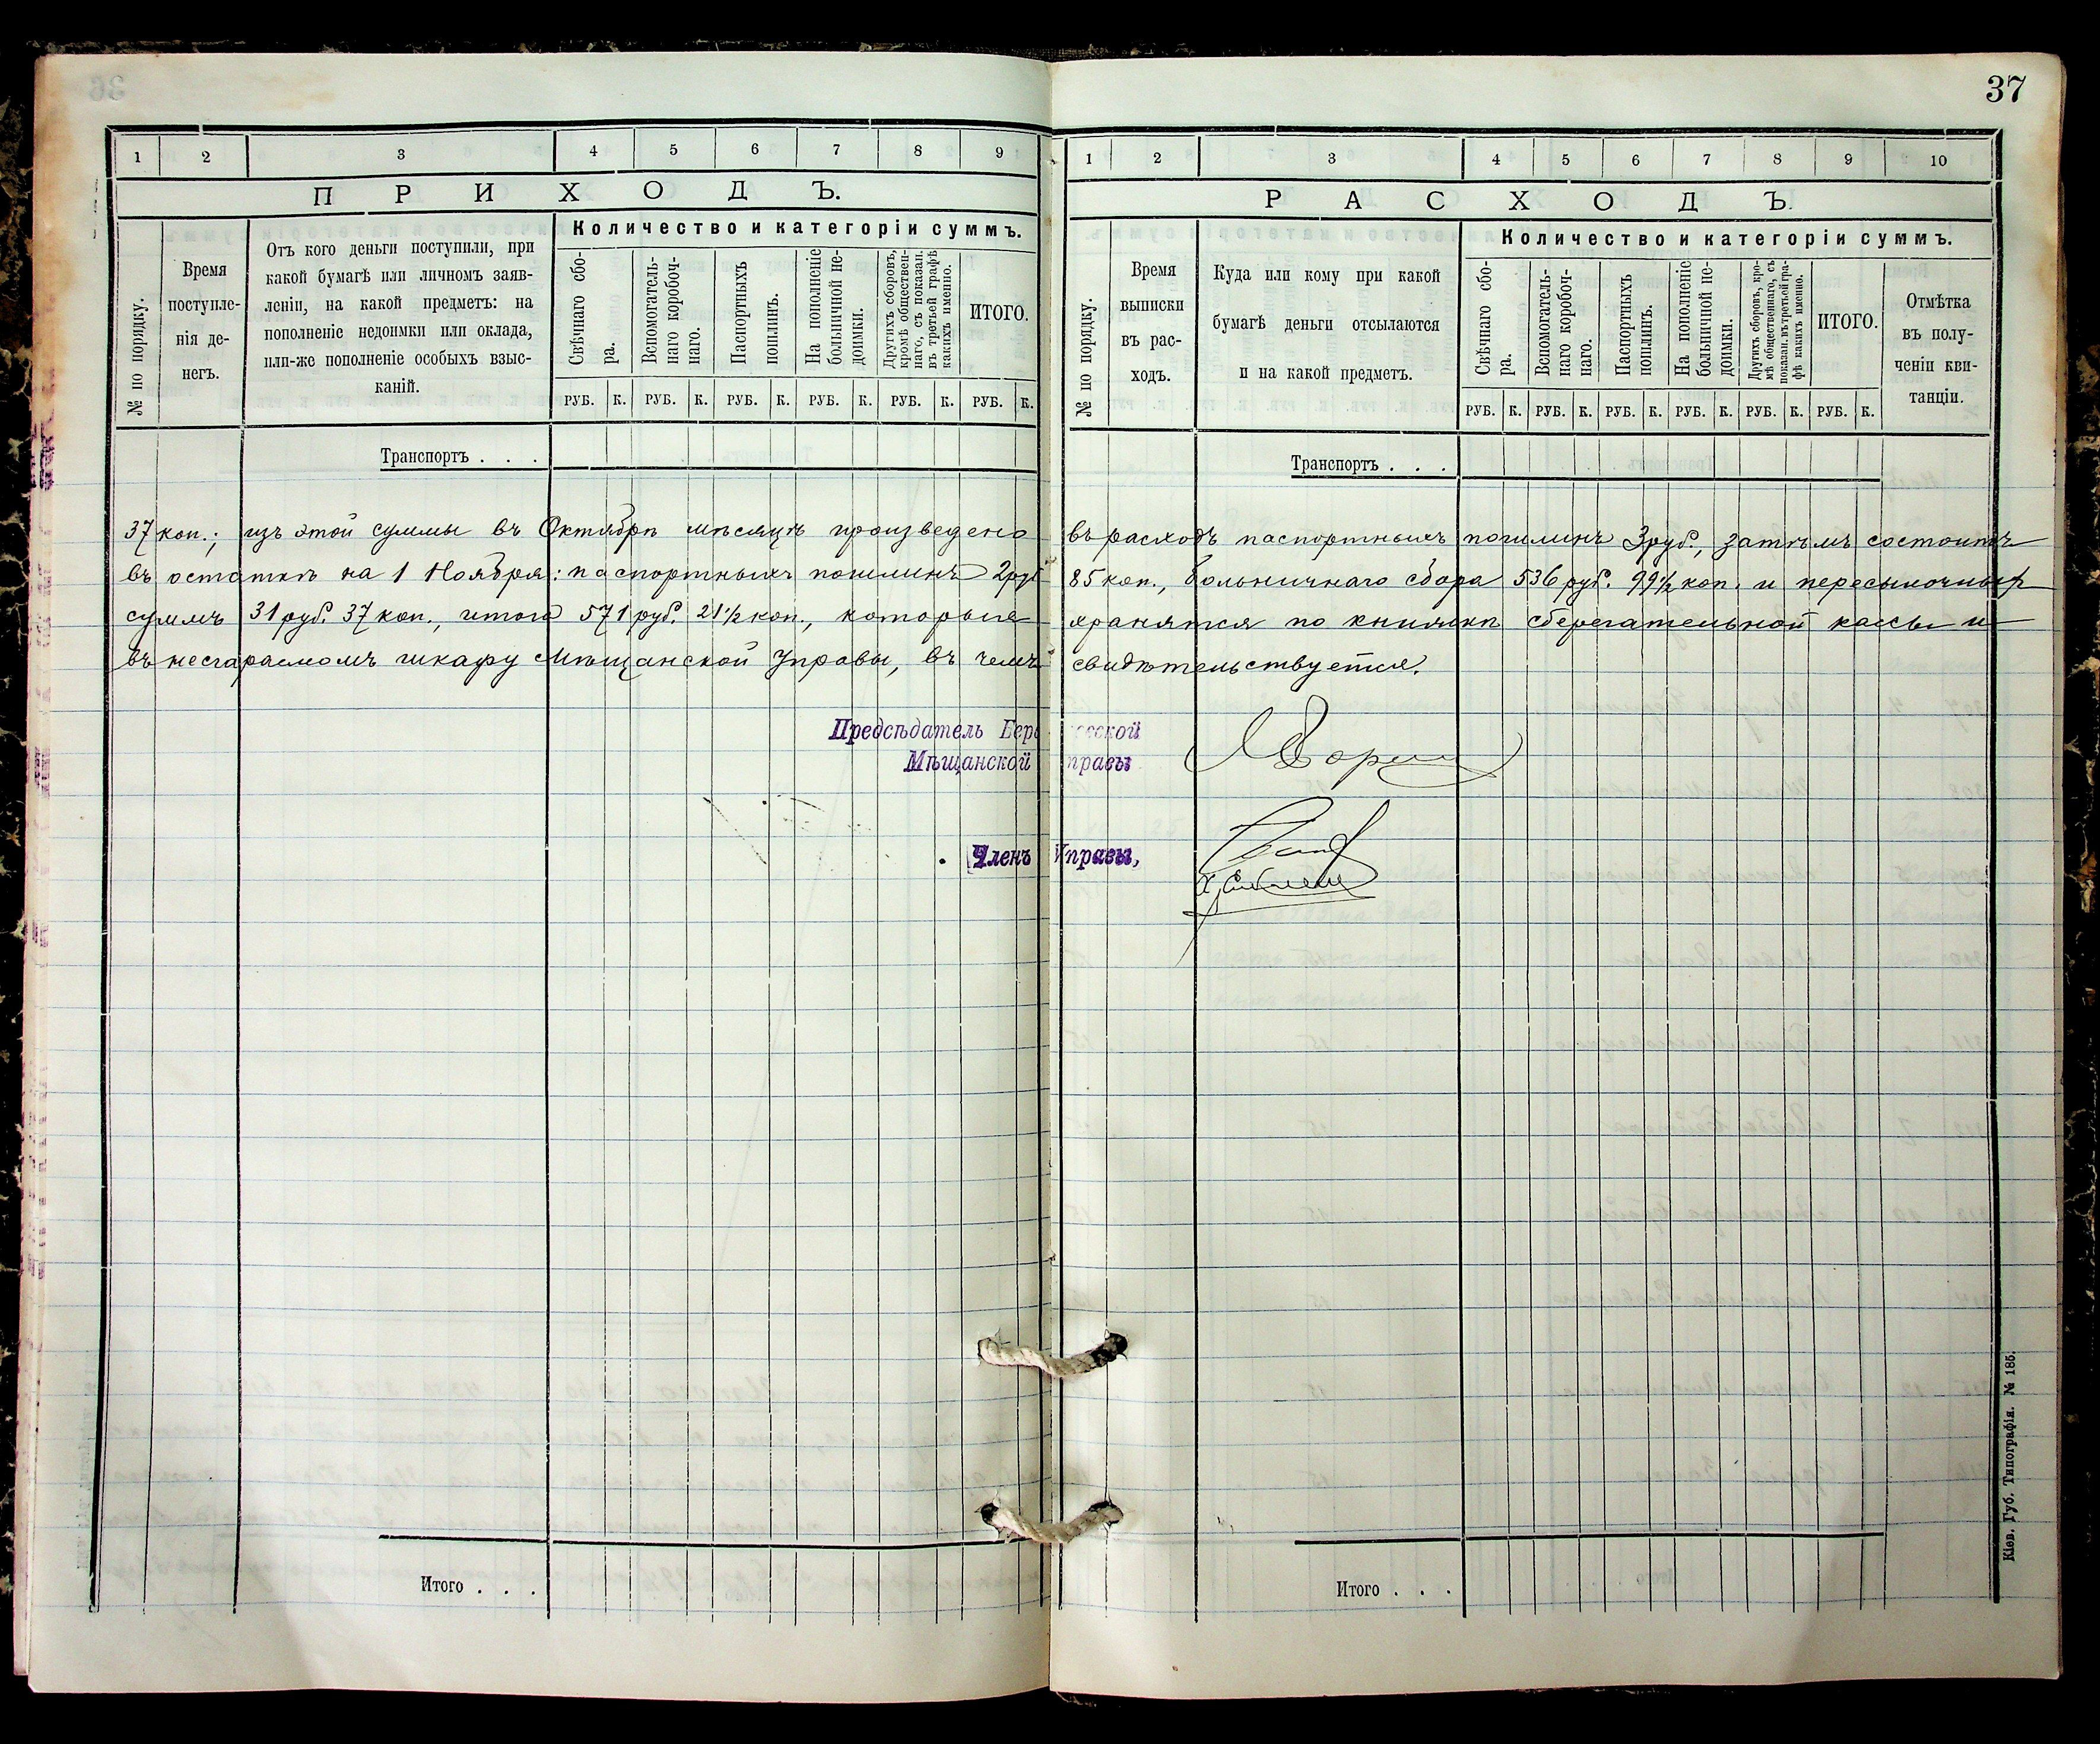 36
1 2 3 4 5 6 7 8 9
ПРИХОДЪ.
№ по порядку.
Время
поступле-
нія де-
негъ.
Отъ кого деньги поступили, при
какой бумагѣ или личномъ заяв-
леніи, на какой предметъ: на
пополненіе недоимки или оклада,
или-же пополненіе особыхъ взыс-
каній.
Количество и категоріи суммъ.
Свѣчнаго сбо-
ра.
Вспомогатель-
наго коробоч-
наго.
Паспортныхъ
пошлинъ.
На пополненіе
больничной не-
доимки.
Другихъ сборовъ,
кромѣ обществен-
наго, съ показан.
въ третьей графѣ
какихъ именно.
ИТОГО.
РУБ. К. РУБ. К. РУБ. К. РУБ. К. РУБ. К. РУБ. К.
Транспортъ . . .
37
1 2 3 4 5 6 7 8 9 10
РАСХОДЪ.
№ по порядку.
Время
выписки
въ рас-
ходъ.
Куда или кому при какой
бумагѣ деньги отсылаются
и на какой предметъ.
Количество и категоріи суммъ.
Свѣчнаго сбо-
ра.
Вспомогатель-
наго коробоч-
наго.
Паспортныхъ
пошлинъ.
На пополненіе
больничной не-
доимки.
Другихъ сборовъ, кро-
мѣ общественнаго, съ
показан. въ третьей гра-
фѣ какихъ именно.
ИТОГО.
Отмѣтка
въ полу-
ченіи кви-
танціи.
РУБ. К. РУБ. К. РУБ. К. РУБ. К. РУБ. К. РУБ. К.
Транспортъ . . .
37 коп.; изъ этой суммы въ Октябрѣ мѣсяцѣ произведено въ расходъ паспортныхъ пошлинъ 3 руб., затѣмъ состоитъ
въ остаткѣ на 1 Ноября: паспортныхъ пошлинъ 2 руб 85 коп., больничнаго сбора 536 руб. 99 1/2 коп. и пересылочныхъ
суммъ 31 руб. 37 коп., итого 571 руб. 21 1/2 коп., которые хранятся по книжкѣ сберегательной кассы и
въ несгараемомъ шкафу Мѣщанской Управы, въ чемъ свидѣтельствуется.
Предсѣдатель
Мѣщанской
Членъ Управы,
Итого . . .
Итого . . .
Кіев. Губ. Типографія. № 185.